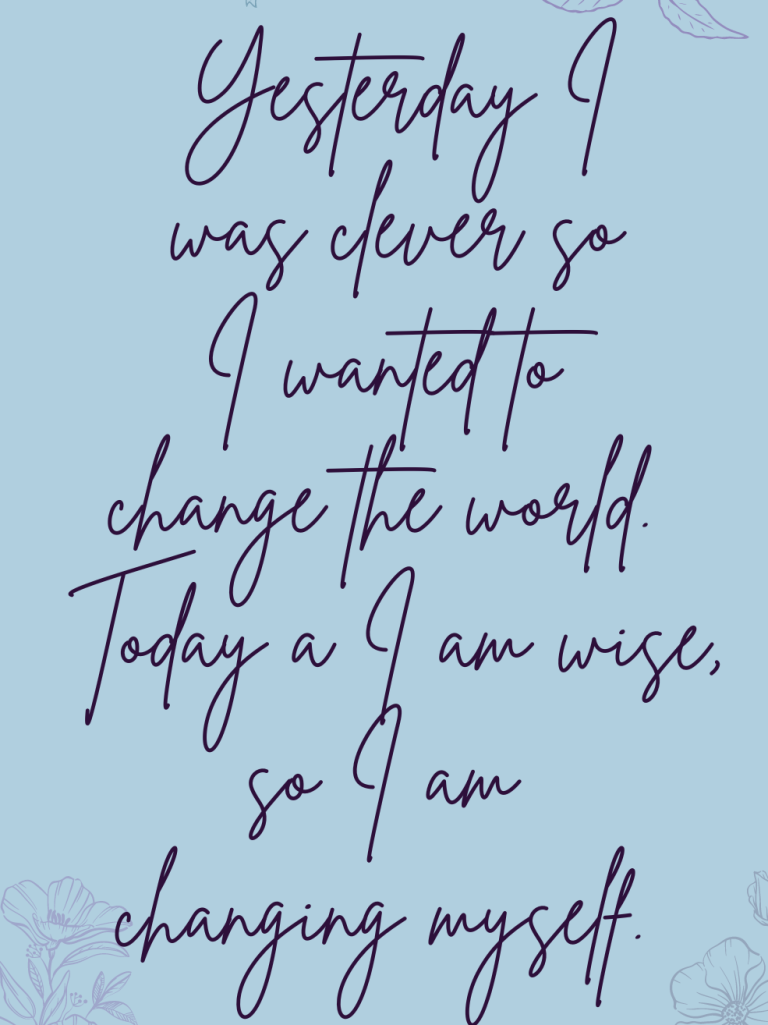 Yesterday I
was clever so
I wanted to
change the world.
Today a I am wise,
so I am
changing myself.